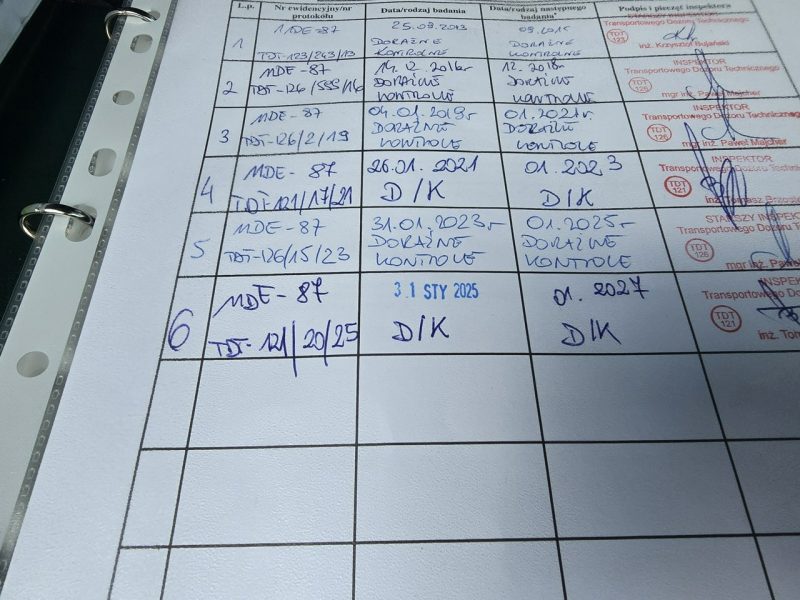 L.p. Nr ewidencyjny/nr protokołu Data/rodzaj badania Data/rodzaj następnego badania Podpis i pieczęć inspektora
1 MDE-87 25.09.2013 09.2015
TDT-123/243/13 DORAŹNE KONTROLNE DORAŹNE KONTROLNE
Transportowego Dozoru Technicznego
TDT 123
inż. Krzysztof Bujański
2 MDE-87 14.12.2016r. 12.2018r.
TDT-126/555/16 DORAŹNE KONTROLNE DORAŹNE KONTROLNE
INSPEKTOR
Transportowego Dozoru Technicznego
TDT 126
mgr inż. Paweł Majcher
3 MDE-87 04.01.2019r 01.2021r.
TDT-126/2/19 DORAŹNE KONTROLE DORAŹNE KONTROLE
INSPEKTOR
Transportowego Dozoru Technicznego
TDT 126
mgr inż. Paweł Majcher
4 MDE-87 26.01.2021 01.2023
TDT-121/17/21 D/K D/K
INSPEKTOR
Transportowego Dozoru
TDT 121
5 MDE-87 31.01.2023r. 01.2025r
TDT-126/15/23 DORAŹNE KONTROLE DORAŹNE KONTROLE
STARSZY
Transportowego Dozoru
TDT 126
mgr inż. Paweł
6 MDE-87 31 STY 2025 01.2027
TDT-121/20/25 D/K D/K
Transportowego Dozoru
TDT 121
inż.